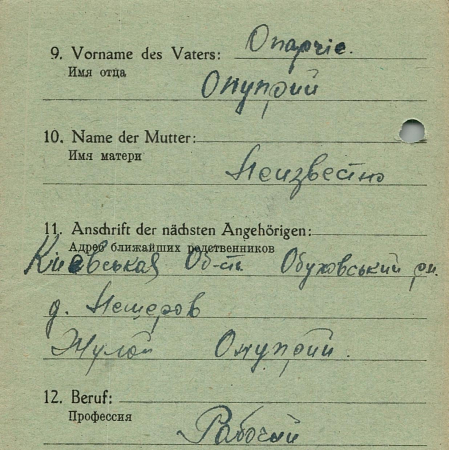 9. Vorname des Vaters: Опарчіе.
Имя отца
Онуприй
10. Name der Mutter:
Имя матери
Неизвестно
11. Anschrift der nächsten Angehörigen:
Адрес ближайших родственников
Киевськая Об-ть Обуховський рн.
д. Нещеров
Жулай Онуприй.
12. Beruf:
Профессия
Рабочий